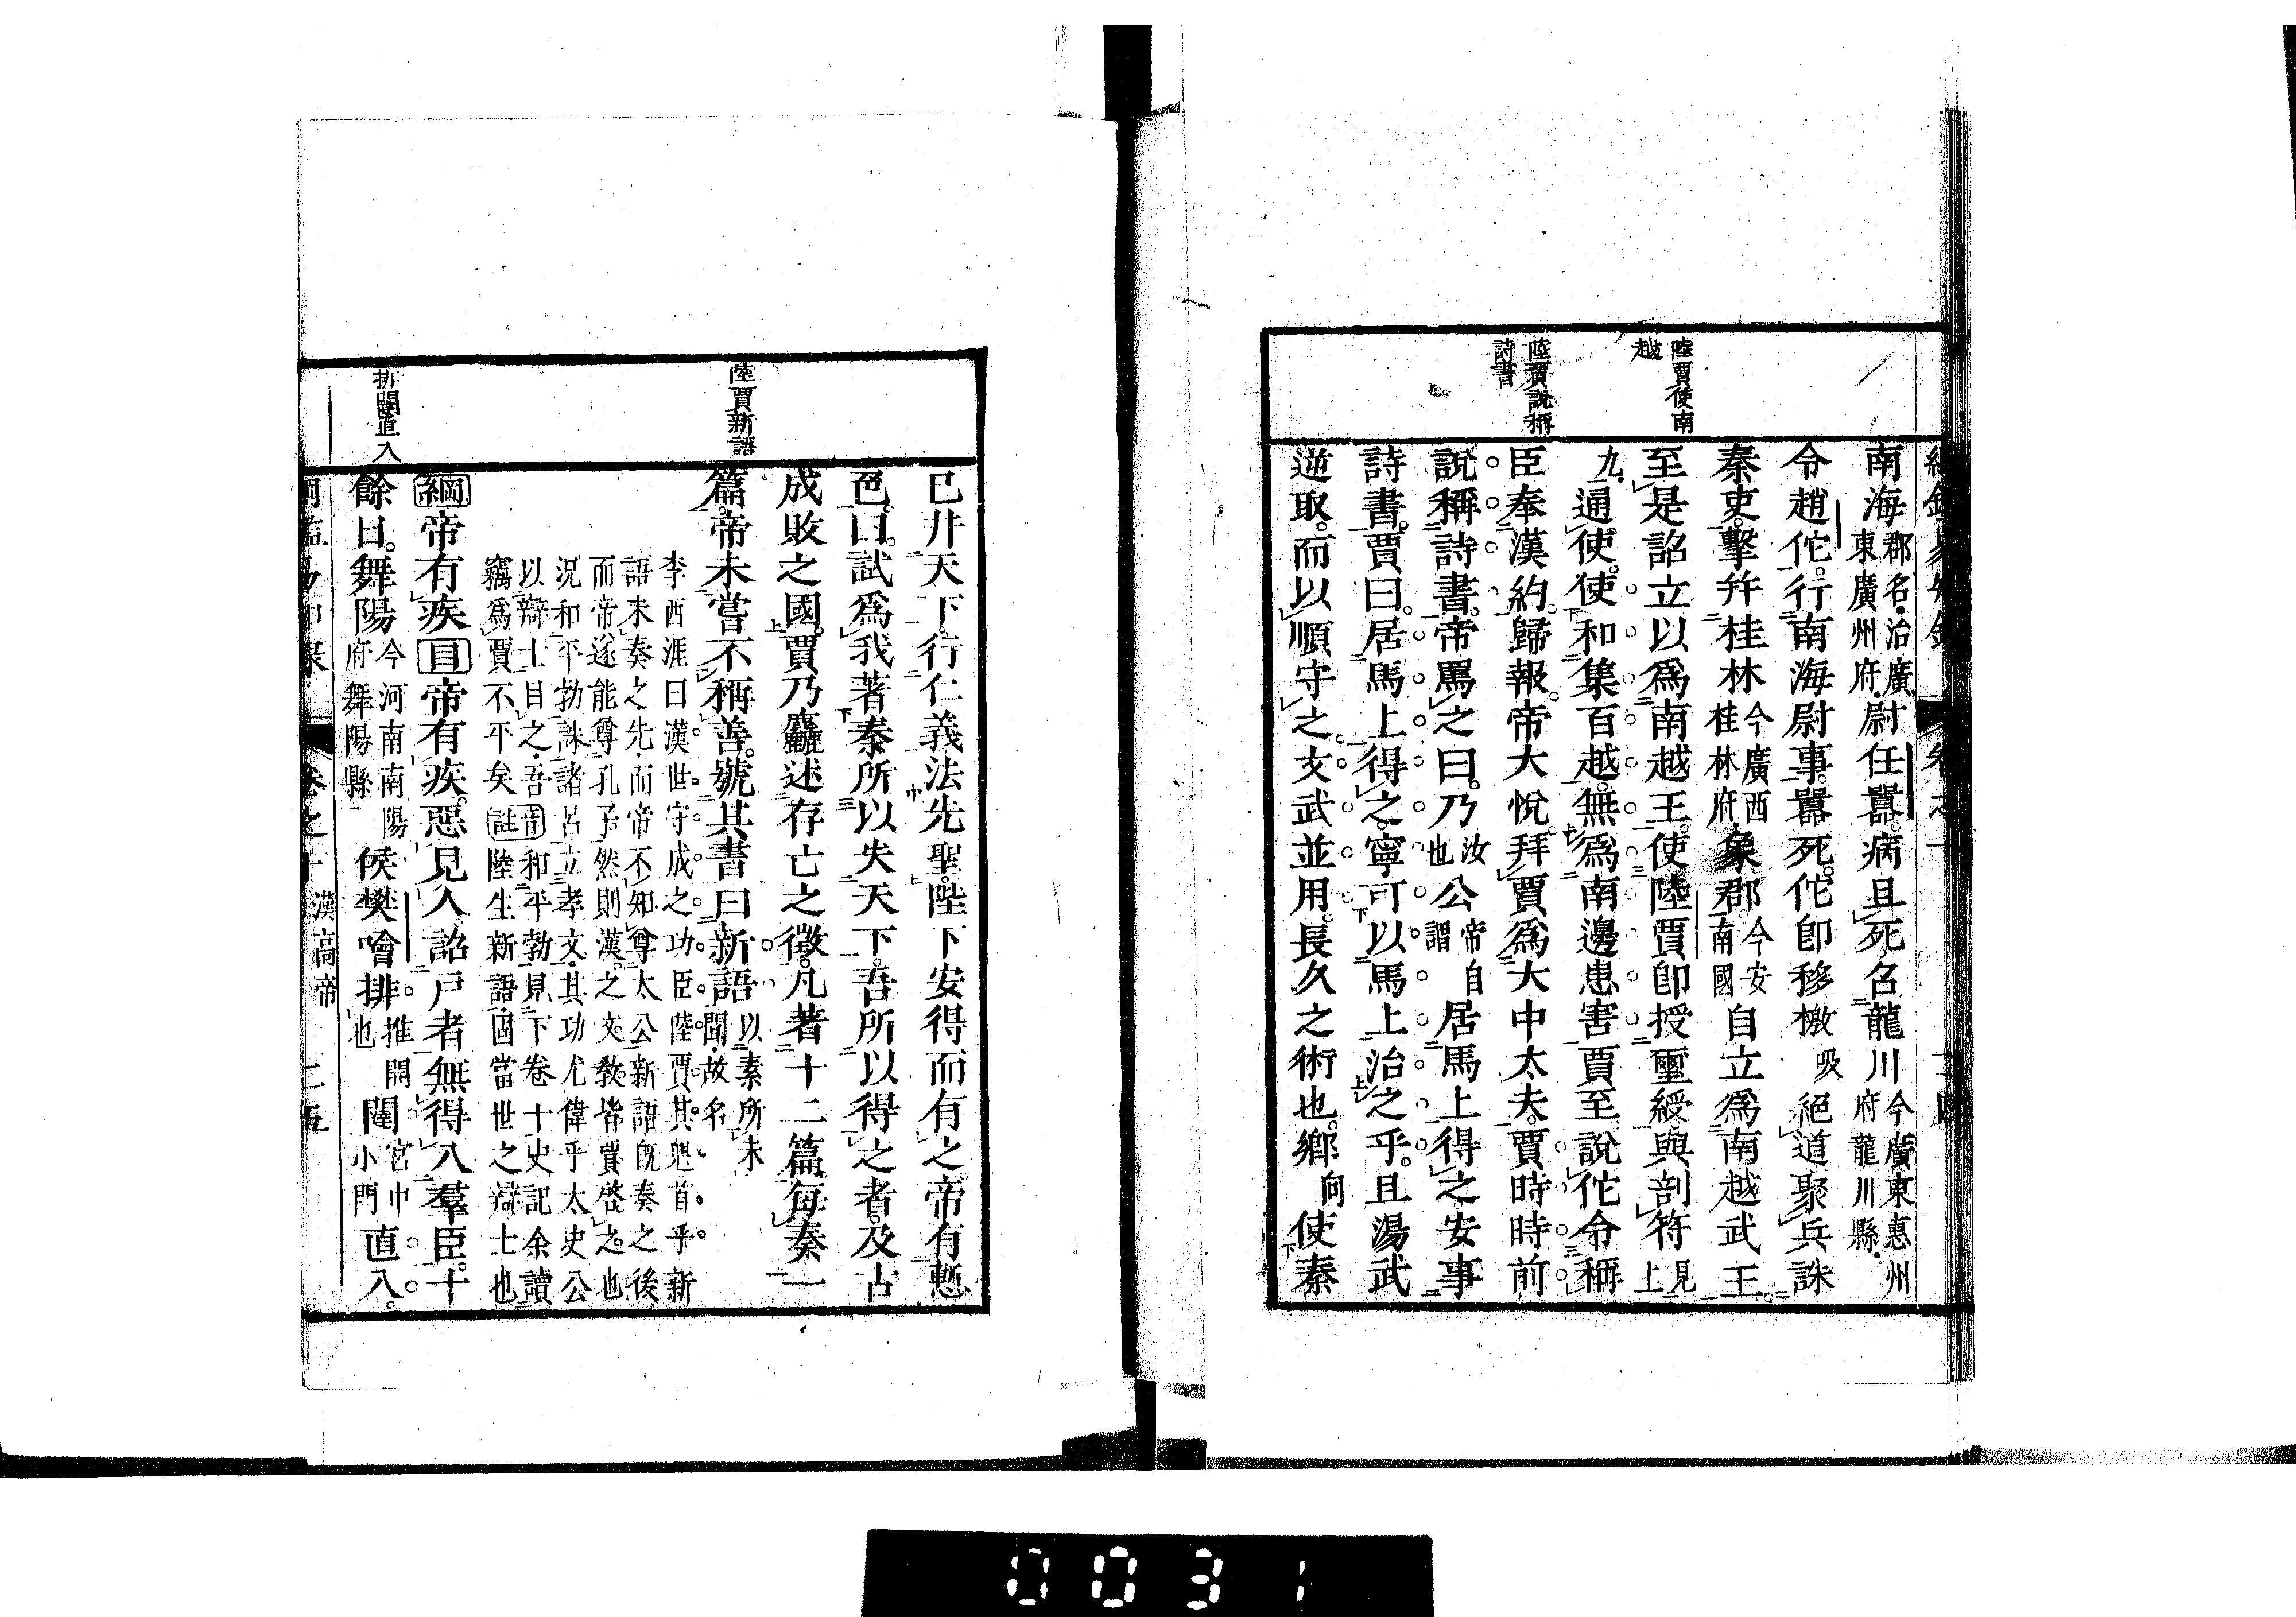 陸賈使南
越
陸賈說稱
詩書
南海郡名治廣東廣州府尉任囂病且死召龍川今廣東惠州府龍川縣
令趙佗行南海尉事囂死佗卽移檄吸絕道聚兵誅
秦吏擊幷桂林今廣西桂林府象郡今安南國自立爲南越武王
至是詔立以爲南越王使陸賈卽授璽綬與剖符見上
九通使使和集百越無爲南邊患害賈至說佗令稱
臣奉漢約歸報帝大悅拜賈爲大中太夫賈時時前
說稱詩書帝罵之曰乃汝也公帝自謂居馬上得之安事
詩書賈曰居馬上得之寧可以馬上治之乎且湯武
逆取而以順守之文武並用長久之術也鄉向使秦
陸賈新語
排闥直入
已幷天下行仁義法先聖陛下安得而有之帝有慙
色曰試爲我著秦所以失天下吾所以得之者及古
成敗之國賈乃麤述存亡之徵凡著十二篇每奏一
篇帝未嘗不稱善號其書曰新語以素所未聞故名
李西涯曰漢世守成之功臣陸賈其魁首乎新
語未奏之先而帝不知尊太公新語旣奏之後
而帝遂能尊孔子然則漢之文教皆賈啓之也
況和平勃誅諸呂立孝文其功尤偉乎太史公
以辯士目之吾音和平勃見下卷十史記余讀
竊爲賈不平矣註陸生新語固當世之辯士也
綱帝有疾目帝有疾惡見人詔戶者無得入羣臣十
餘日舞陽今河南南陽府舞陽縣侯樊噲排推開也闥宮中小門直入
卷之十 漢高帝 二五
0031